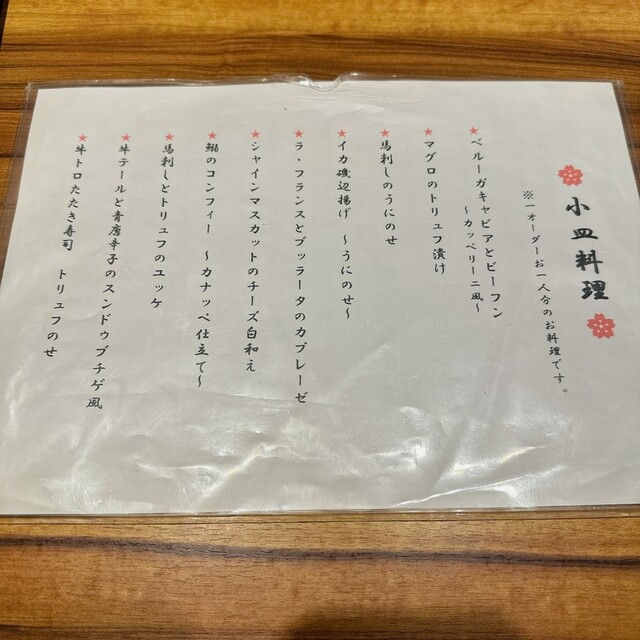 小皿料理
※一オーダーお一人分のお料理です。
★ベルーガキャビアとビーフン
～カッペリーニ風～
★マグロのトリュフ漬け
★馬刺しのうにのせ
★イカ磯辺揚げ ～うにのせ～
★ラ・フランスとブッラータのカプレーゼ
★シャインマスカットのチーズ白和え
★鰯のコンフィー ～カナッペ仕立て～
★馬刺しとトリュフのユッケ
★牛テールと青唐辛子のスンドゥブチゲ風
★牛トロたたき寿司 トリュフのせ